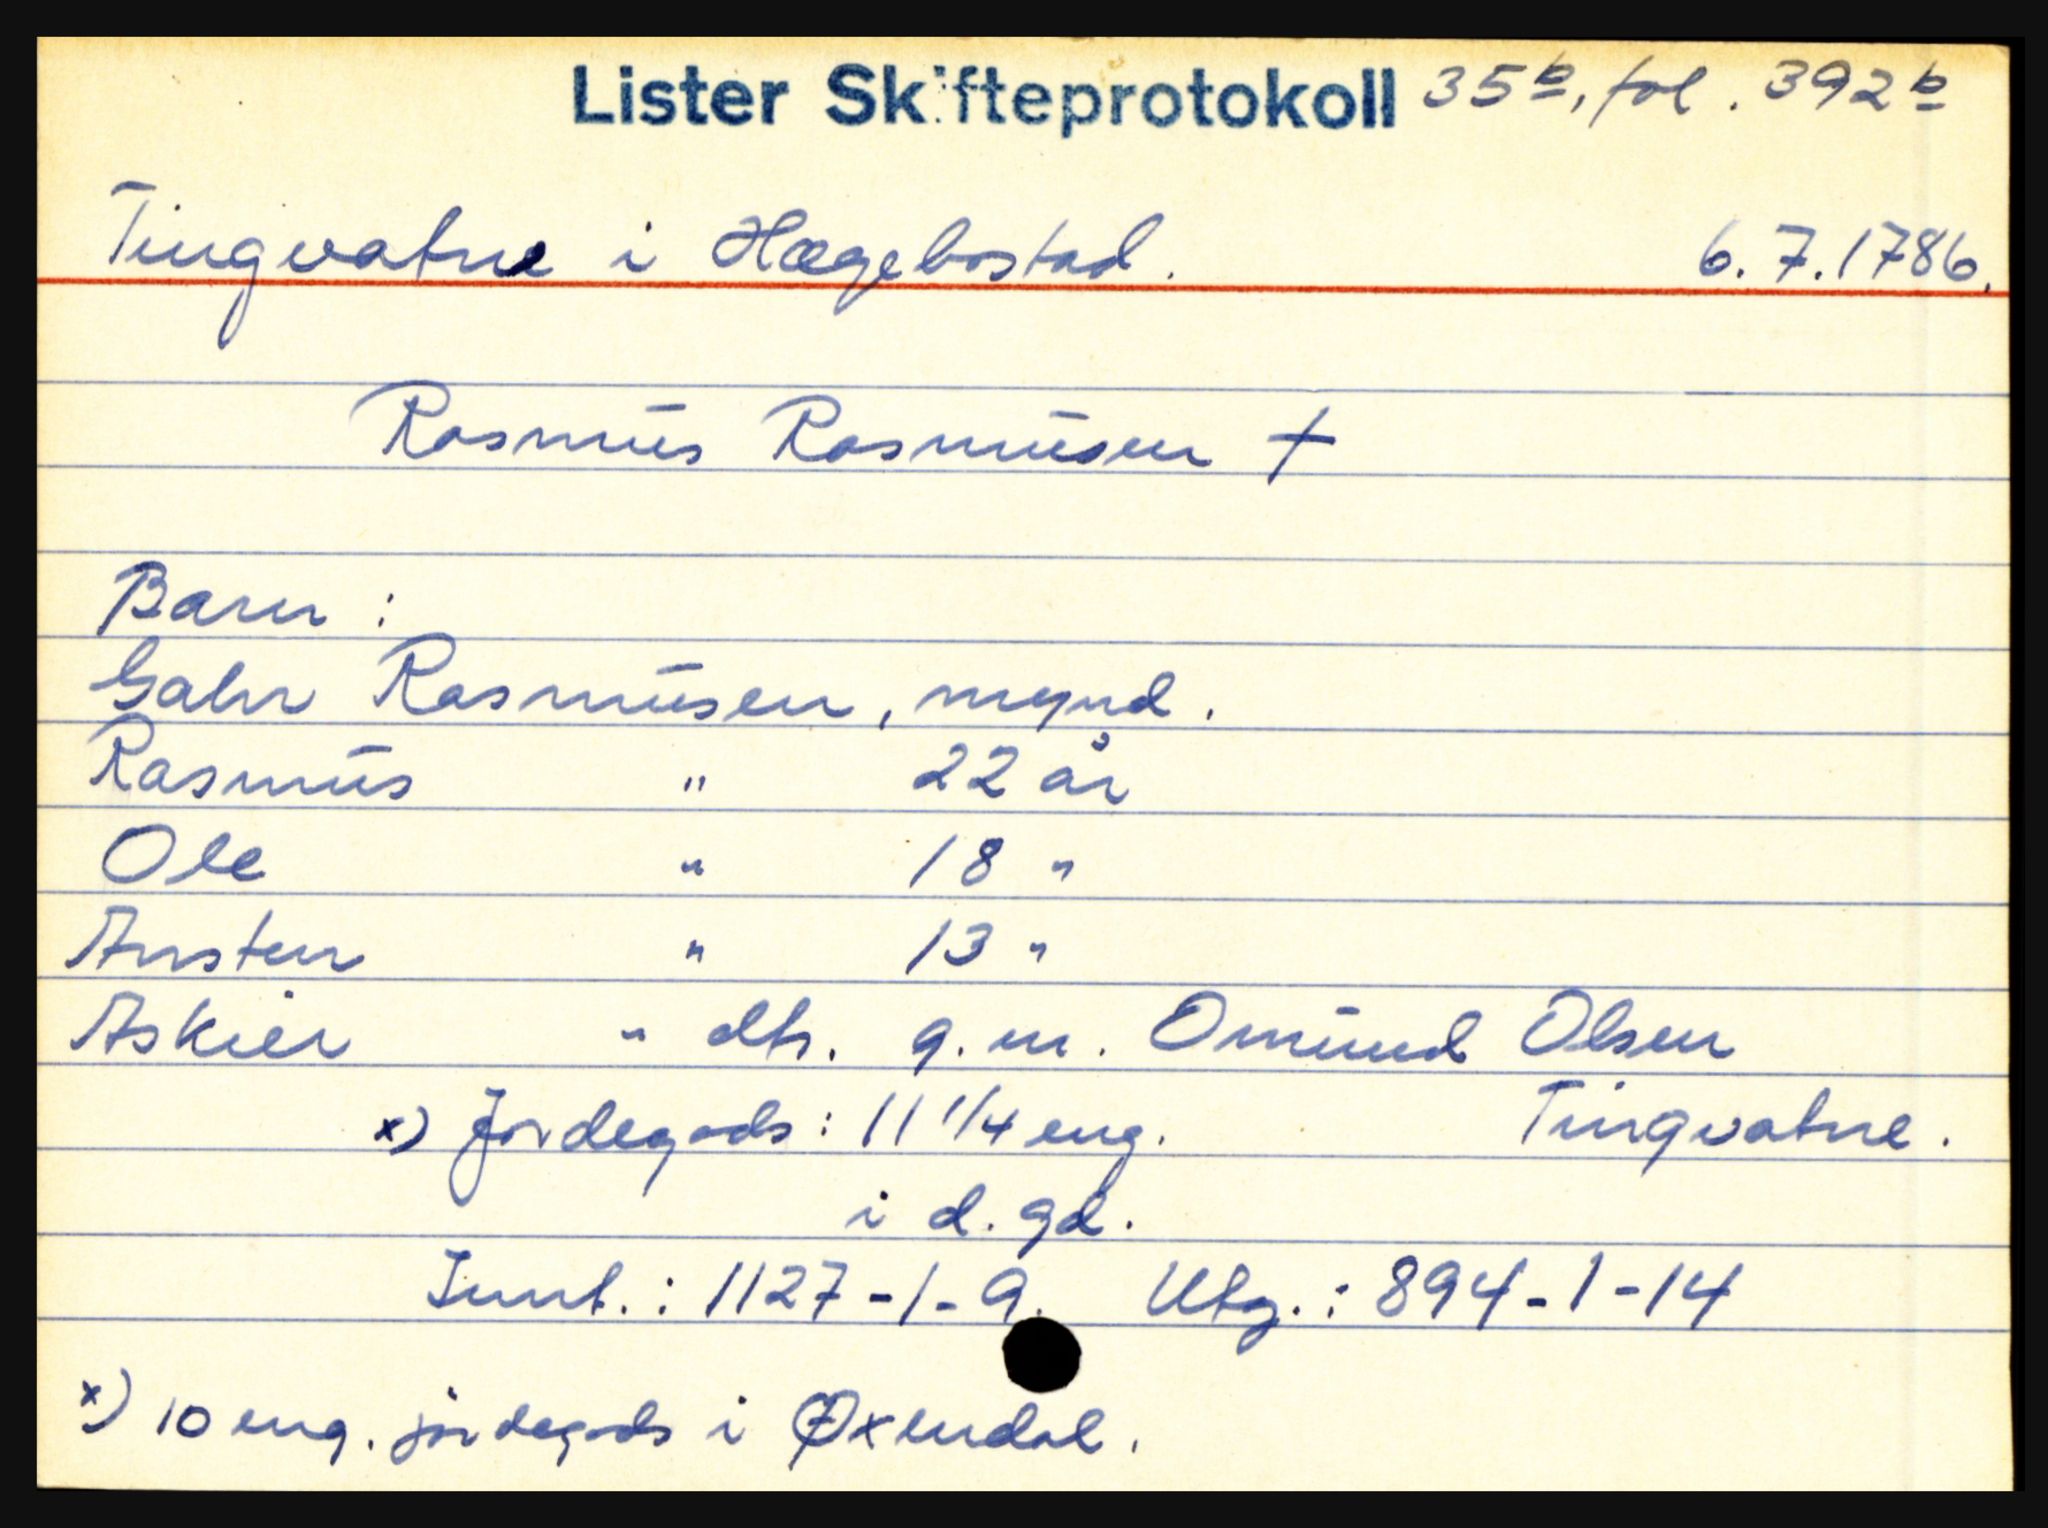 Lister Skifteprotokoll 35b, fol. 392b
Tingvatne i Hægebostad. 6.7.1786.
Rasmus Rasmusen †
Barn :
Gahr Rasmusen, mynd.
Rasmus " 22 år
Ole " 18 "
Ansten " 13 "
Askier " dtr. g.m. Omund Olsen
x) Jordegods : 11 1/4 eng. Tingvatne.
i d. gd.
Innt. : 1127-1-9. Utg. : 894-1-14
x) 10 eng. jordegods i Øxendal.